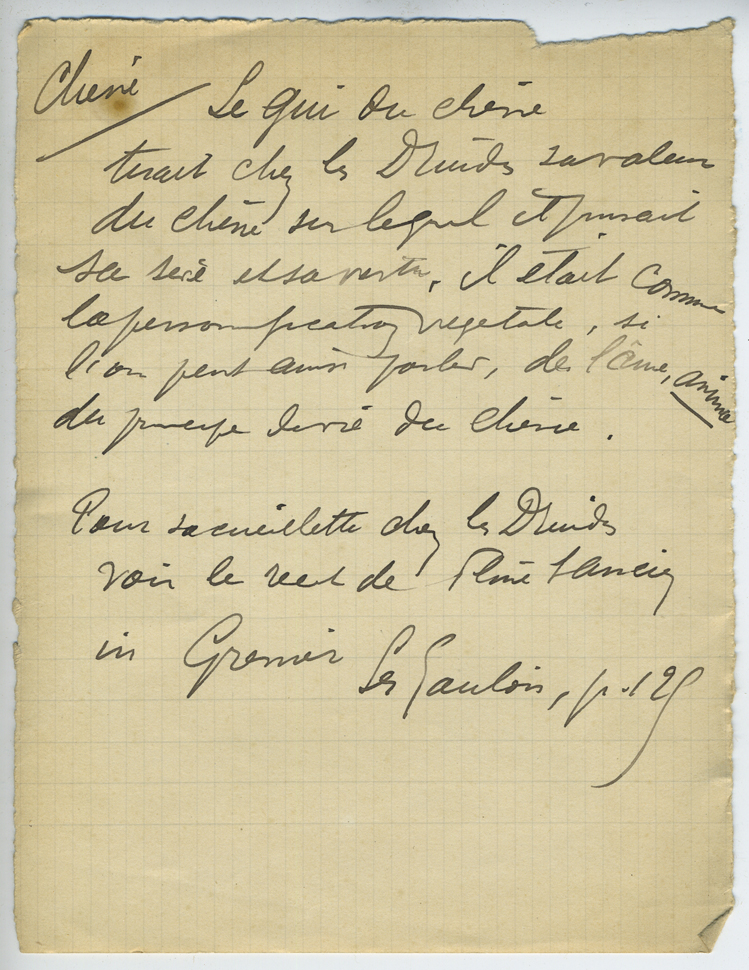 Chêne / Le gui du chêne
tirait chez les Druides sa valeur
du chêne sur lequel il puisait
sa sève et sa vertu, il était comme
la personnification végétale, si
l'on peut ainsi parler, de l'âme, anima
du principe divin du chêne.
Pour sa cueillette chez les Druides
voir le récit de Pline l'Ancien
in Grenier Les Gaulois, p. 129